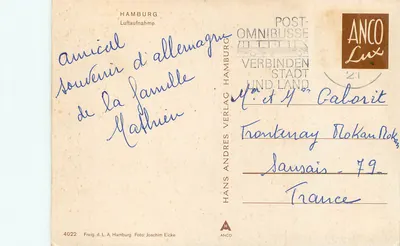 HAMBURG
Luftaufnahme
amical
souvenir d'allemagne
de la famille
Mathieu
4022 Freig. d. L. A. Hamburg Foto: Joachim Eicke
HANS ANDRES VERLAG HAMBURG
ANCO
POST-
OMNIBUSSE
VERBINDEN
STADT
UND LAND
21
ANCO
Lux
Mr et Mme Gaborit
Frontenay Rohan Rohan
79
France